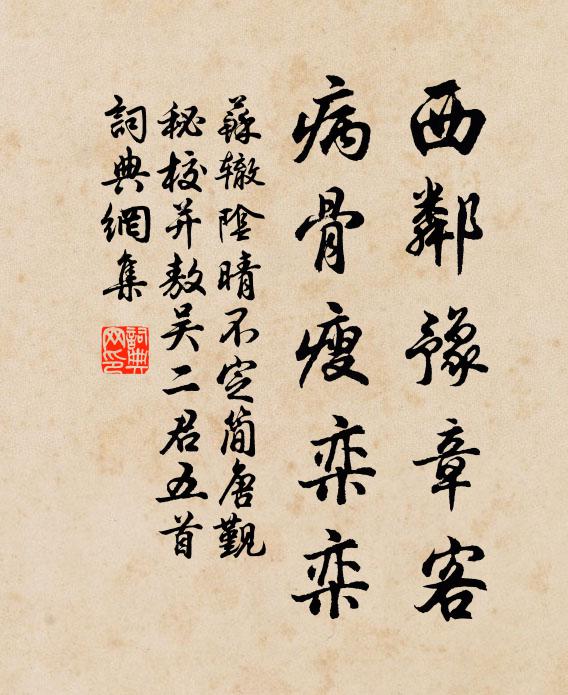 西鄰豫章客
病骨瘦栾栾
蘇辙陰晴不定简唐觐
秘校并敖吴二君五首
詞典網集
詞典网印